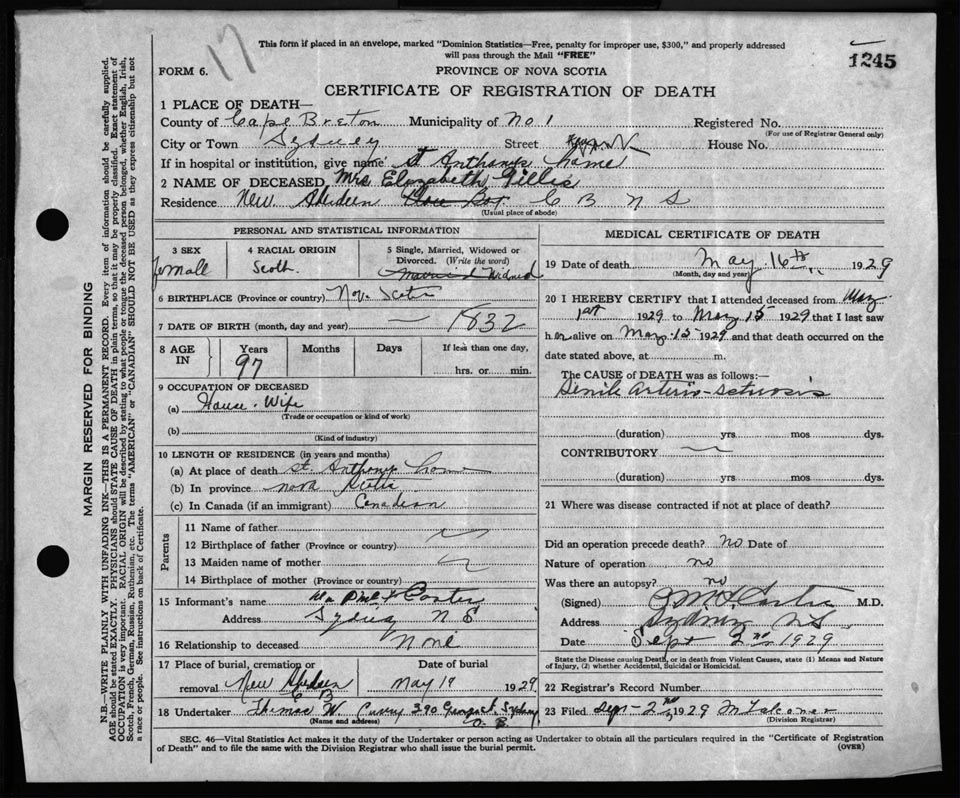 17
This form if placed in an envelope, marked "Dominion Statistics—Free, penalty for improper use, $300," and properly addressed
will pass through the Mail "FREE"
1245
FORM 6.
PROVINCE OF NOVA SCOTIA
CERTIFICATE OF REGISTRATION OF DEATH
1 PLACE OF DEATH—
County of Cape Breton Municipality of No 1 Registered No.
(For use of Registrar General only)
City or Town Sydney Street House No.
If in hospital or institution, give name St Anthonys home
2 NAME OF DECEASED Mrs Elizabeth Gillis
Residence New Aberdeen C B N S
(Usual place of abode)
PERSONAL AND STATISTICAL INFORMATION
3 SEX
Female
4 RACIAL ORIGIN
Scoth
5 Single, Married, Widowed or
Divorced. (Write the word)
Married Widowed
6 BIRTHPLACE (Province or country) Nova Scotia
7 DATE OF BIRTH (month, day and year) — 1832
8 AGE IN
Years
97
Months
Days
If less than one day,
hrs. or min.
9 OCCUPATION OF DECEASED
(a) House-Wife
(Trade or occupation or kind of work)
(b)
(Kind of industry)
10 LENGTH OF RESIDENCE (in years and months)
(a) At place of death St. Anthonys home
(b) In province Nova Scotia
(c) In Canada (if an immigrant) Canadian
Parents
11 Name of father
12 Birthplace of father (Province or country)
13 Maiden name of mother
14 Birthplace of mother (Province or country)
15 Informant's name
Address Sydney N S
16 Relationship to deceased None
17 Place of burial, cremation or
removal New Aberdeen
C B
Date of burial
May 19 1929
18 Undertaker Thomas W. Curry 390 George St. Sydney
C. B.
(Name and address)
MEDICAL CERTIFICATE OF DEATH
19 Date of death May 16th 1929
(Month, day and year)
20 I HEREBY CERTIFY that I attended deceased from May
1st 1929 to May 15 1929 that I last saw
her alive on May 15 1929 and that death occurred on the
date stated above, at m.
The CAUSE of DEATH was as follows:—
Senile Arterio-Sclerosis
(duration) yrs mos dys.
CONTRIBUTORY
(duration) yrs mos dys.
21 Where was disease contracted if not at place of death?
Did an operation precede death? No Date of
Nature of operation no
Was there an autopsy? no
(Signed) M.D.
Address Sydney NS
Date Sept 2nd 1929
State the Disease causing Death, or in death from Violent Causes, state (1) Means and Nature
of Injury, (2) whether Accidental, Suicidal or Homicidal.
22 Registrar's Record Number
23 Filed Sept-2nd 1929
(Division Registrar)
SEC. 46—Vital Statistics Act makes it the duty of the Undertaker or person acting as Undertaker to obtain all the particulars required in the "Certificate of Registration
of Death" and to file the same with the Division Registrar who shall issue the burial permit.
(OVER)
MARGIN RESERVED FOR BINDING
N.B.—WRITE PLAINLY WITH UNFADING INK—THIS IS A PERMANENT RECORD. Every item of information should be carefully supplied.
AGE should be stated EXACTLY. PHYSICIANS should STATE CAUSE OF DEATH in plain terms, so that it may be properly classified. Exact statement of
OCCUPATION is very important. RACIAL ORIGIN will be described by stating to what people or tongue the deceased person belonged, whether English, Irish,
Scotch, French, German, Russian, Ruthenian, etc. The terms "AMERICAN" or "CANADIAN" SHOULD NOT BE USED as they express citizenship but not
a race or people. See instructions on back of Certificate.